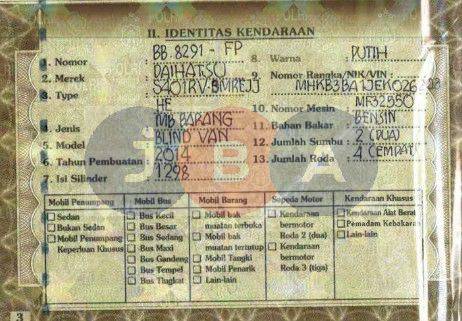 II. IDENTITAS KENDARAAN
1. Nomor : BB. 8291 - FP
2. Merek : DAIHATSU
3. Type : S401RV-BMREJJ
HE
4. Jenis : MB BARANG
5. Model : BLIND VAN
6. Tahun Pembuatan : 2014
7. Isi Silinder : 1298
8. Warna : PUTIH
9. Nomor Rangka/NIK/VIN :
10. Nomor Mesin :
11. Bahan Bakar : BENSIN
12. Jumlah Sumbu : 2 (DUA)
13. Jumlah Roda : 4 (EMPAT)
JBA
Mobil Penumpang
Sedan
Bukan Sedan
Mobil Penumpang
Keperluan Khusus
Mobil Bus
Bus Kecil
Bus Besar
Bus Sedang
Bus Maxi
Bus Gandeng
Bus Tempel
Bus Tingkat
Mobil Barang
Mobil bak
muatan terbuka
Mobil bak
muatan tertutup
Mobil Tangki
Mobil Penarik
Lain-lain
Sepeda Motor
Kendaraan
bermotor
Roda 2 (dua)
Kendaraan
bermotor
Roda 3 (tiga)
Kendaraan Khusus
Kendaraan Alat Berat
Pemadam Kebakaran
Lain-lain
3